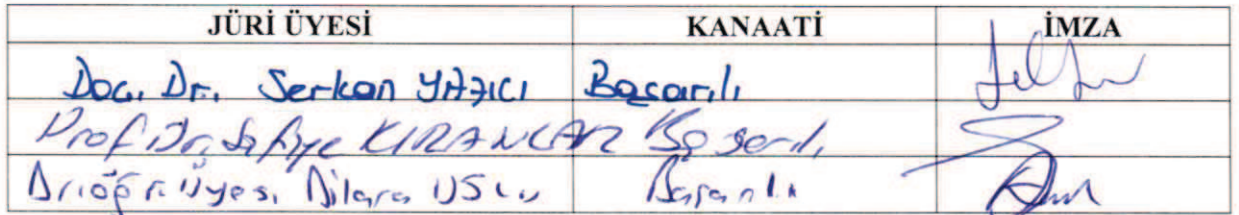 JÜRİ ÜYESİ KANAATİ İMZA
Doç. Dr. Serkan YAZICI Başarılı
Prof. Dr. Safiye KIRANLAR Başarılı
Dr. Öğr. Üyesi Dilara USLU Başarılı